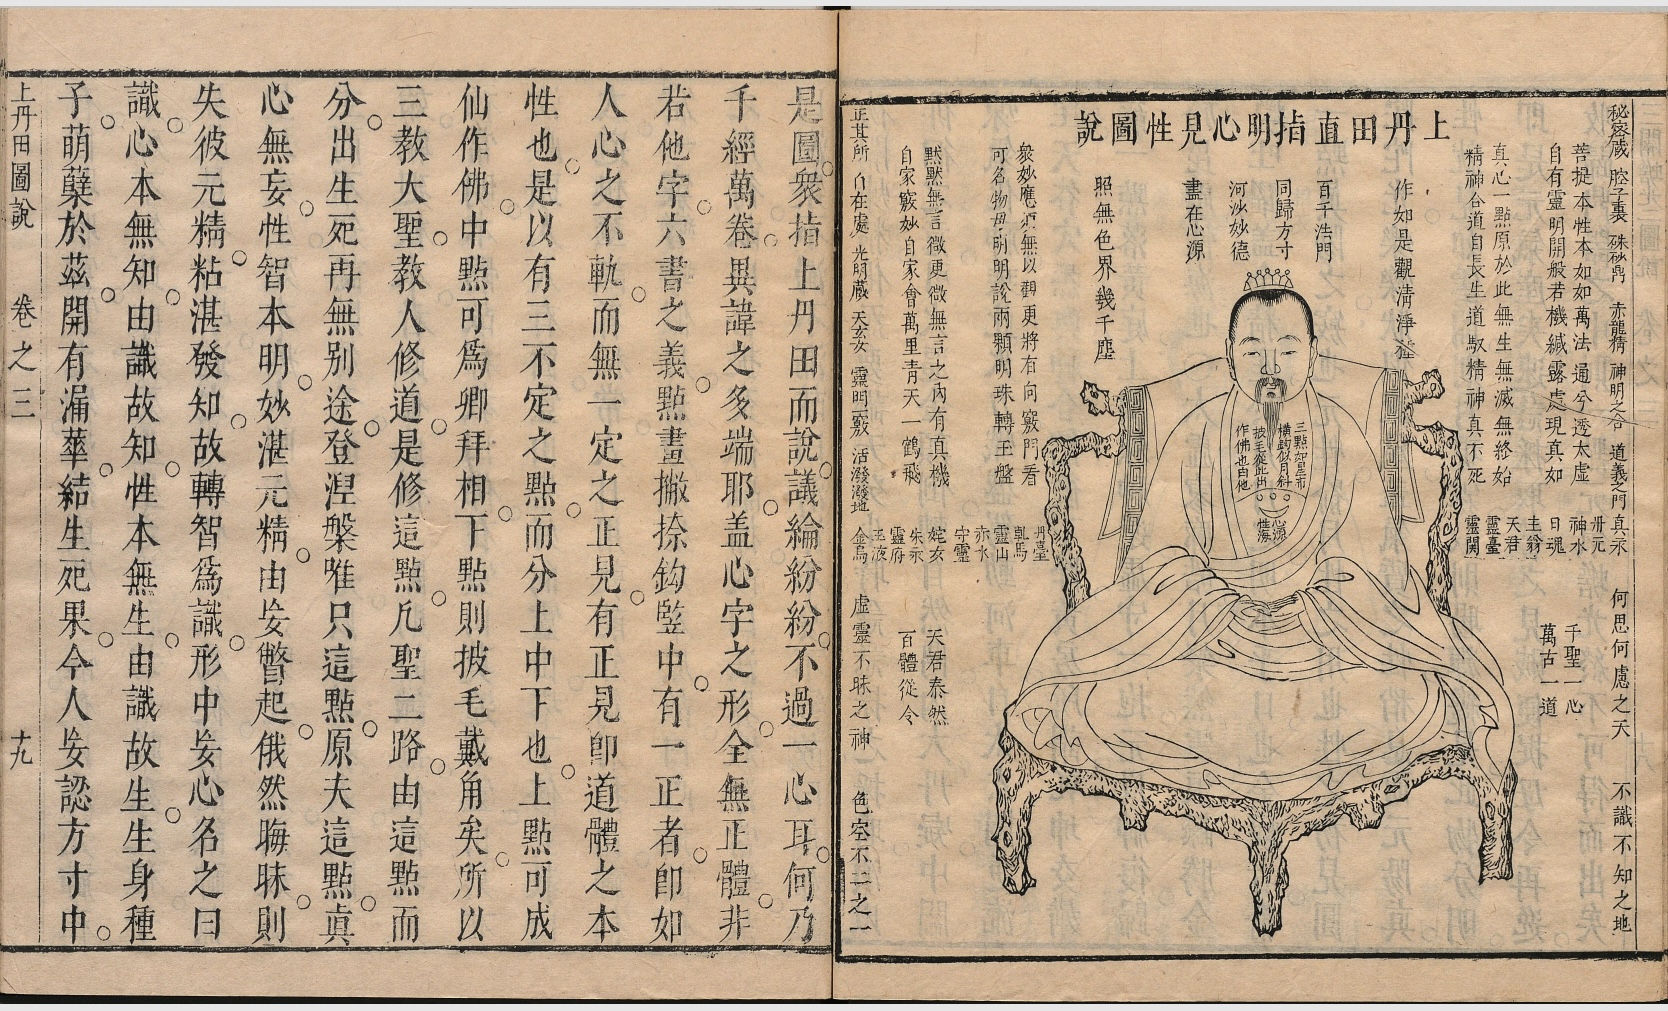 上丹田直指明心見性圖說
秘密藏
腔子裏
硃砂鼎
赤龍精
神明之合
道義之門
真汞
何思何慮之天
不識不知之地
菩提本性本如如萬法通兮透太虛
自有靈明開般若機緘露處現真如
丹元
神水
日魂
主翁
天君
靈臺
靈関
千聖一心
萬古一道
真心一點原於此無生無滅無終始
精神合道自長生道馭精神真不死
作如是觀清淨
百千法門
同歸方寸
河沙妙德
盡在心源
照無色界幾千塵
三點如星布
橫鈎似月斜
披毛從此出
作佛也由他
心源
性海
衆妙應須無以觀更將有向竅門看
可名物母明明說兩顆明珠轉玉盤
丹臺
靈山
赤水
守靈
姹女
朱汞
靈府
玉液
金烏
默默無言微更微無言之內有真機
自家竅妙自家會萬里青天一鶴飛
天君泰然
百體從令
正其所
自在處
光明藏
天玄女
靈門一竅
活潑潑地
虛靈不昧之神
色空不二之一
是圖衆指上丹田而說議論紛紛不過一心耳何乃
千經萬卷異諱之多端耶盖心字之形全無正體非
若他字六書之義點畫撇捺鈎竪中有一正者卽如
人心之不軌而無一定之正見有正見卽道體之本
性也是以有三不定之點而分上中下也上點可成
仙作佛中點可為卿拜相下點則披毛戴角矣所以
三教大聖教人修道是修這點凡聖二路由這點而
分出生死再無别途登涅槃唯只這點原夫這點真
心無妄性智本明妙湛元精由妄瞥起俄然晦昧則
失彼元精粘湛發知故轉智為識形中妄心名之曰
識心本無知由識故知性本無生由識故生生身種
子萌蘖於茲開有漏華結生死果今人妄認方寸中
上丹田圖說
卷之三
十九